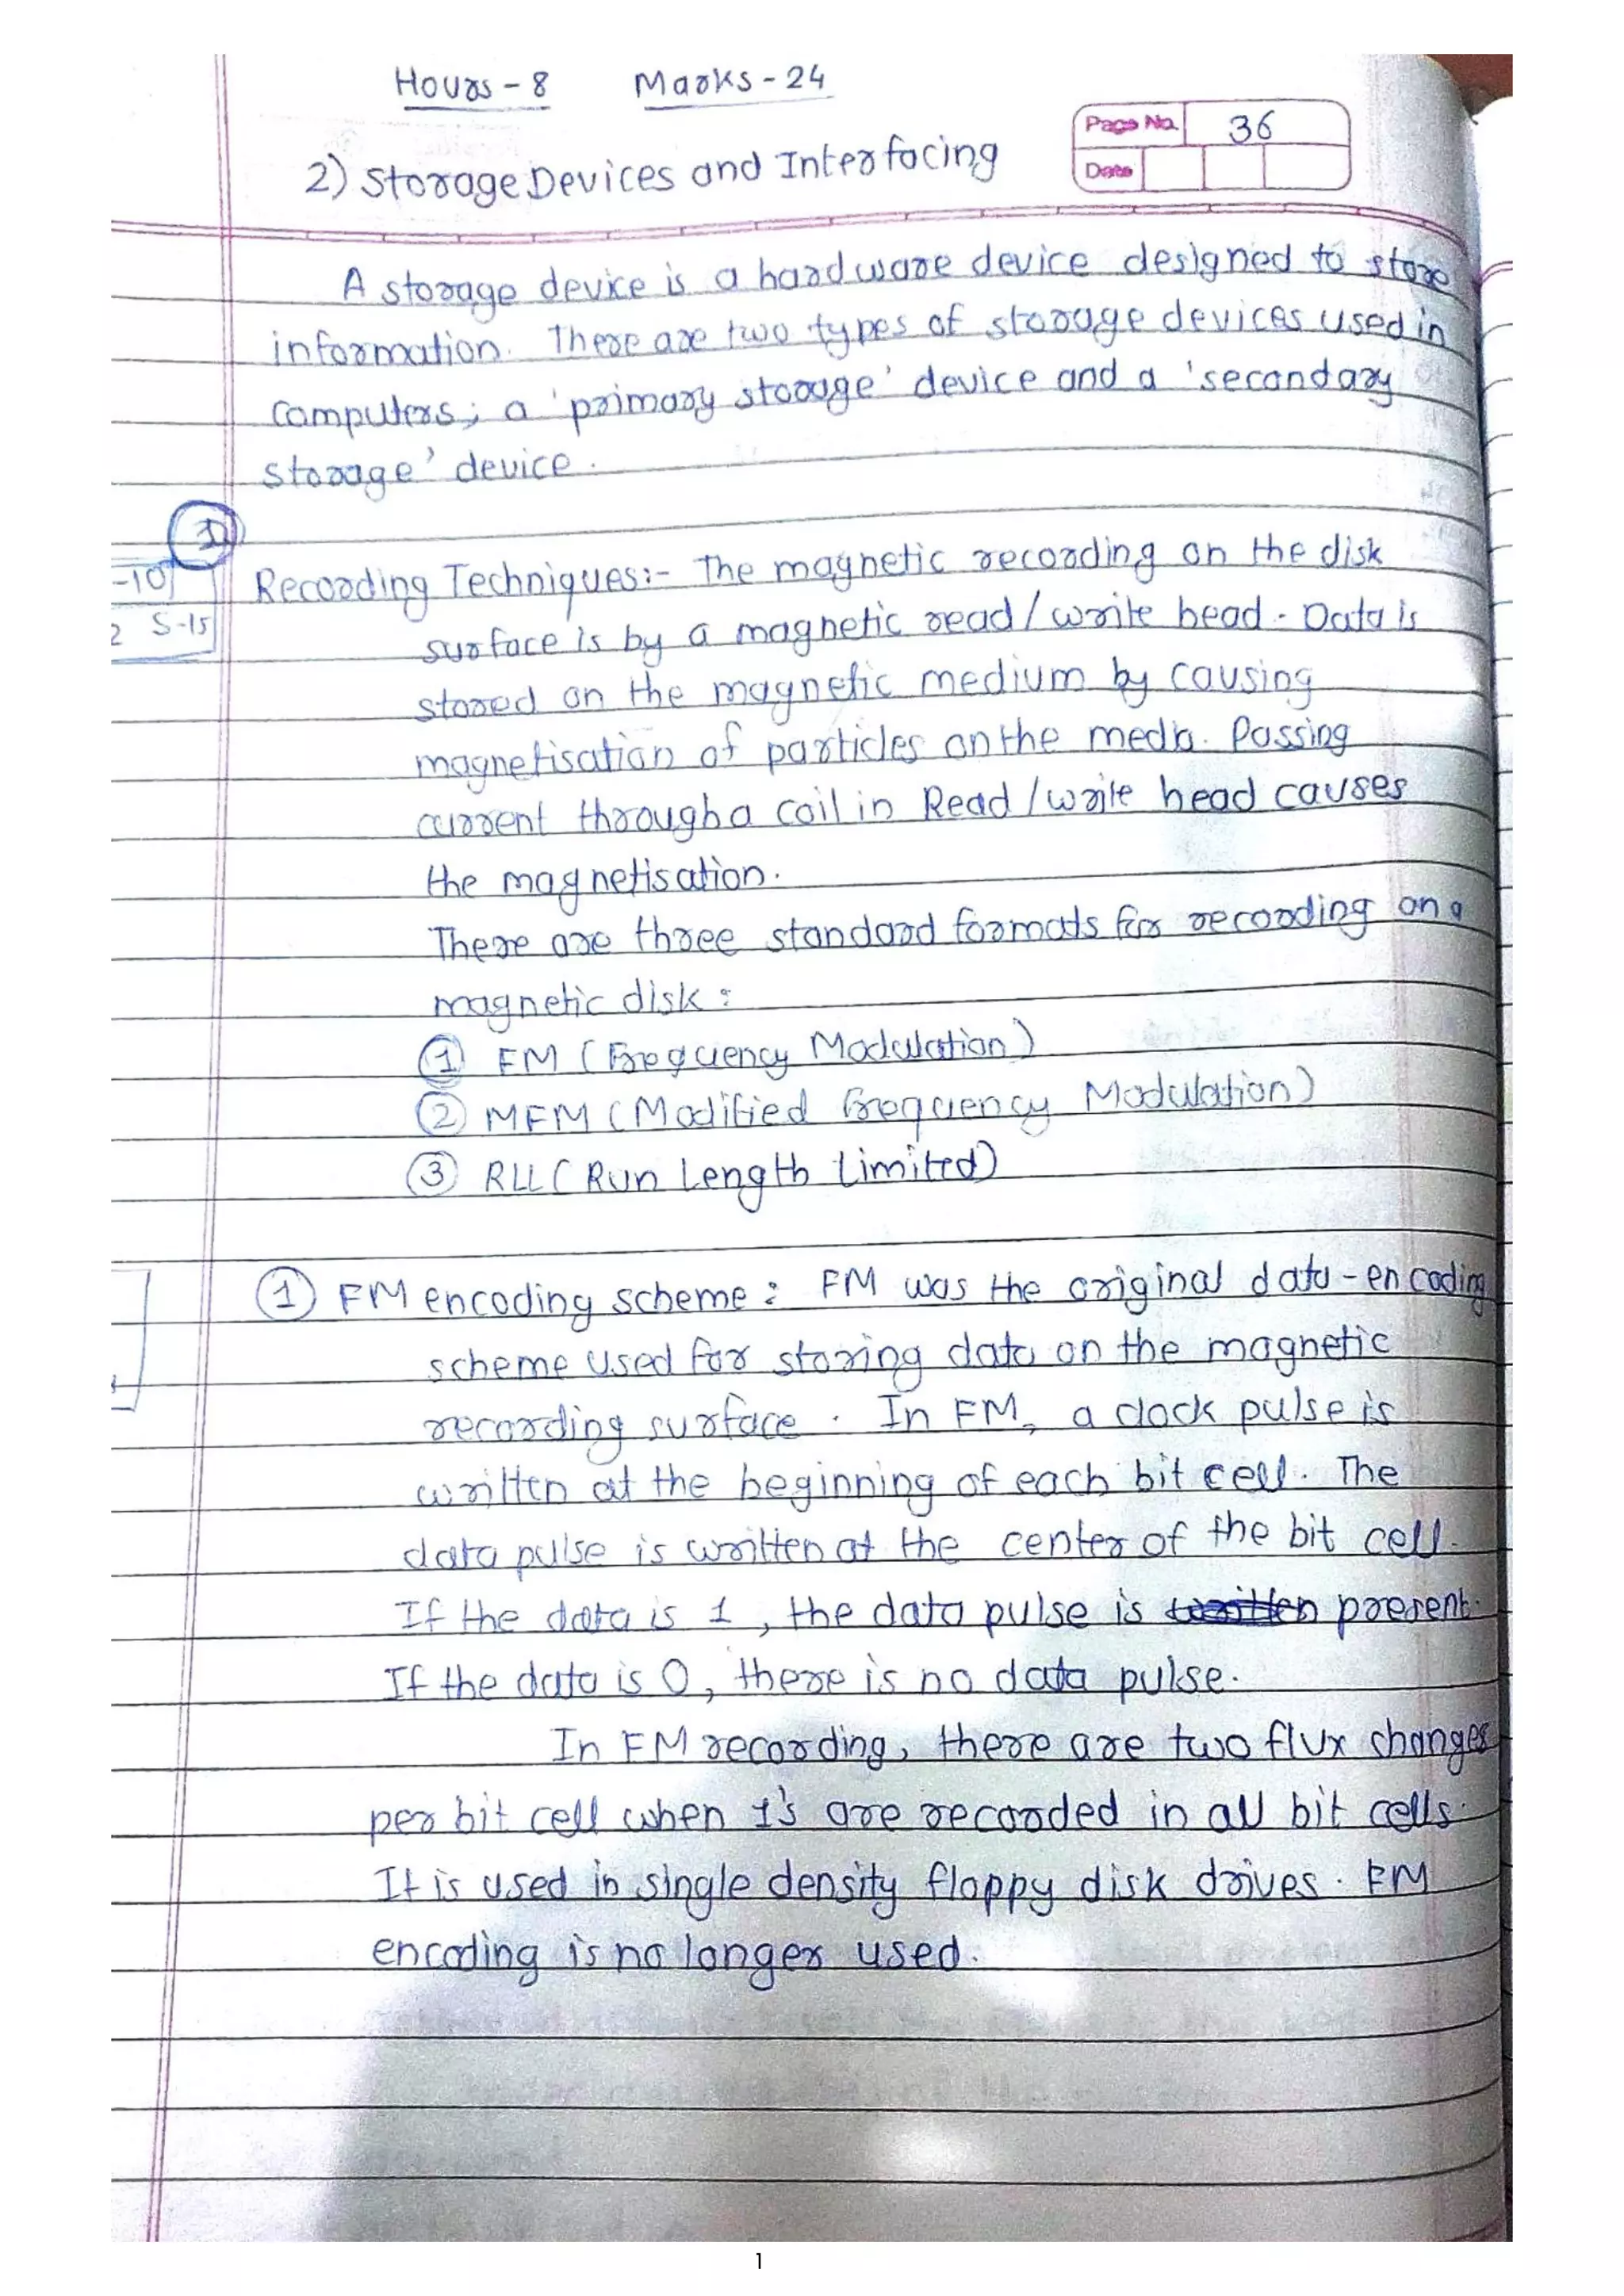 Hours - 8 Marks - 24
Page No. 36
Date
2) Storage Devices and Interfacing
A storage device is a hardware device designed to store
information. There are two types of storage devices used in
computers; a 'primary storage' device and a 'secondary
storage' device.
1
-10
2 S-15
Recording Techniques:- The magnetic recording on the disk
surface is by a magnetic read/write head. Data is
stored on the magnetic medium by causing
magnetisation of particles on the media. Passing
current through a coil in Read/write head causes
the magnetisation.
There are three standard formats for recording on a
magnetic disk:
① FM (Frequency Modulation)
② MFM (Modified frequency Modulation)
③ RLL (Run Length Limited)
① FM encoding scheme: FM was the original data-encoding
scheme used for storing data on the magnetic
recording surface. In FM, a clock pulse is
written at the beginning of each bit cell. The
data pulse is written at the center of the bit cell.
If the data is 1, the data pulse is written present.
If the data is 0, there is no data pulse.
In FM recording, there are two flux changes
per bit cell when 1's are recorded in all bit cells.
It is used in single density floppy disk drives. FM
encoding is no longer used.
1